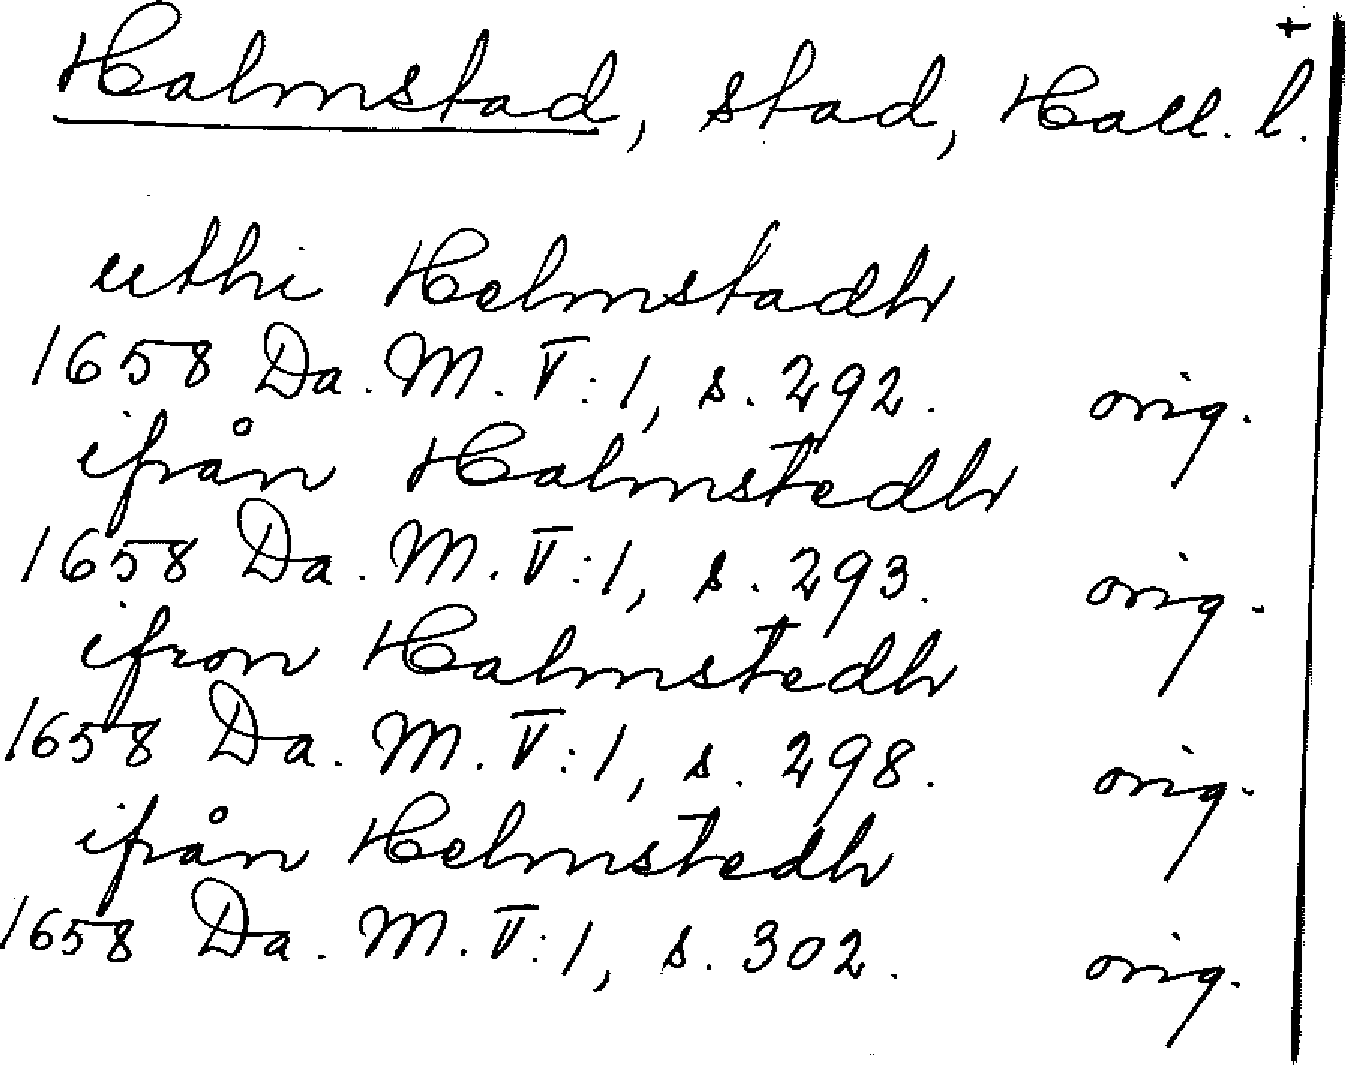 Halmstad, stad, Hall. l. †
uthi Helmstadh
1658 Da. M. V:1, s. 292. orig.
ifrån Halmstedh
1658 Da. M. V:1, s. 293. orig.
ifron Halmstedh
1658 Da. M. V:1, s. 298. orig.
ifrån Helmstedh
1658 Da. M. V:1, s. 302. orig.